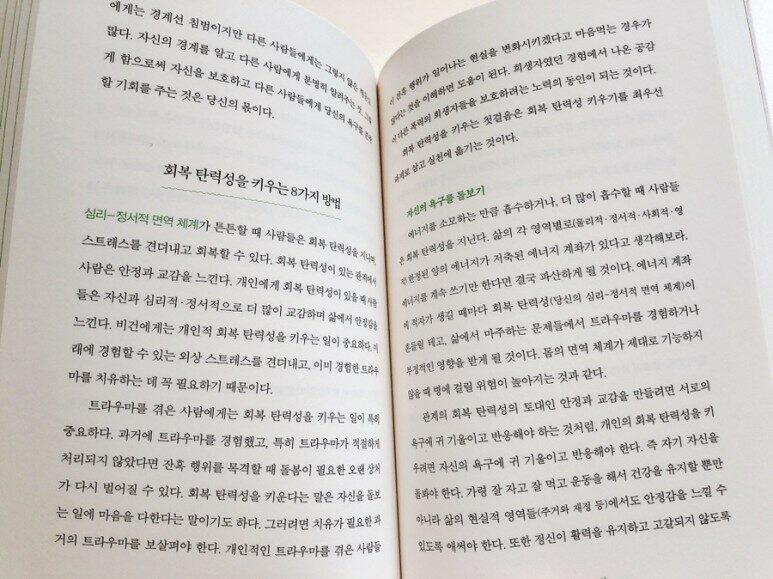 에게는 경계선 침범이지만 다른 사람들에게는 그렇지 않은 행동도
많다. 자신의 경계를 알고 다른 사람에게 분명하게 알려주는 것, 그렇
게 함으로써 자신을 보호하고 다른 사람들에게 당신의 욕구를 존중
할 기회를 주는 것은 당신의 몫이다.
회복 탄력성을 키우는 8가지 방법
심리-정서적 면역 체계가 튼튼할 때 사람들은 회복 탄력성을 지니며,
스트레스를 견뎌내고 회복할 수 있다. 회복 탄력성이 있는 관계에서
사람은 안정과 교감을 느낀다. 개인에게 회복 탄력성이 있을 때 사람
들은 자신과 심리적·정서적으로 더 많이 교감하며 삶에서 안정감을
느낀다. 비건에게는 개인적 회복 탄력성을 키우는 일이 중요하다. 미
래에 경험할 수 있는 외상 스트레스를 견뎌내고, 이미 경험한 트라우
마를 치유하는 데 꼭 필요하기 때문이다.
트라우마를 겪은 사람에게는 회복 탄력성을 키우는 일이 특히
중요하다. 과거에 트라우마를 경험했고, 특히 트라우마가 적절하게
처리되지 않았다면 잔혹 행위를 목격할 때 돌봄이 필요한 오랜 상처
가 다시 벌어질 수 있다. 회복 탄력성을 키운다는 말은 자신을 돌보
는 일에 마음을 다한다는 말이기도 하다. 그러려면 치유가 필요한 과
거의 트라우마를 보살펴야 한다. 개인적인 트라우마를 겪은 사람들
이 잔혹 행위가 일어나는 현실을 변화시키겠다고 마음먹는 경우가
많다는 것을 이해하면 도움이 된다. 희생자였던 경험에서 나온 공감
이 다른 폭력의 희생자들을 보호하려는 노력의 동인이 되는 것이다.
회복 탄력성을 키우는 첫걸음은 회복 탄력성 키우기를 최우선
과제로 삼고 실천에 옮기는 것이다.
자신의 욕구를 돌보기
에너지를 소모하는 만큼 흡수하거나, 더 많이 흡수할 때 사람들
은 회복 탄력성을 지닌다. 삶의 각 영역별로(물리적·정서적·사회적·영
적) 한정된 양의 에너지가 저축된 에너지 계좌가 있다고 생각해보라.
에너지를 계속 쓰기만 한다면 결국 파산하게 될 것이다. 에너지 계좌
에 적자가 생길 때마다 회복 탄력성(당신의 심리-정서적 면역 체계)이
흔들릴 테고, 삶에서 마주하는 문제들에서 트라우마를 경험하거나
부정적인 영향을 받게 될 것이다. 몸의 면역 체계가 제대로 기능하지
않을 때 병에 걸릴 위험이 높아지는 것과 같다.
관계의 회복 탄력성의 토대인 안정과 교감을 만들려면 서로의
욕구에 귀 기울이고 반응해야 하는 것처럼, 개인의 회복 탄력성을 키
우려면 자신의 욕구에 귀 기울이고 반응해야 한다. 즉 자기 자신을
돌봐야 한다. 가령 잘 자고 잘 먹고 운동을 해서 건강을 유지할 뿐만
아니라 삶의 현실적 영역들(주거와 재정 등)에서도 안정감을 느낄 수
있도록 애써야 한다. 또한 정신이 활력을 유지하고 고갈되지 않도록